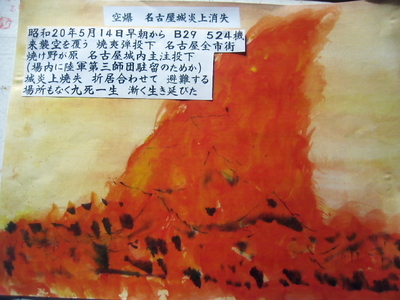 空爆 名古屋城炎上消失
昭和20年5月14日早朝から B29 524機
来襲空を覆う 焼夷弾投下 名古屋全市街
焼け野が原 名古屋城内主注投下
(場内に陸軍第三師団駐留のためか)
城炎上焼失 折居合わせて 避難する
場所もなく九死一生 漸く生き延びた